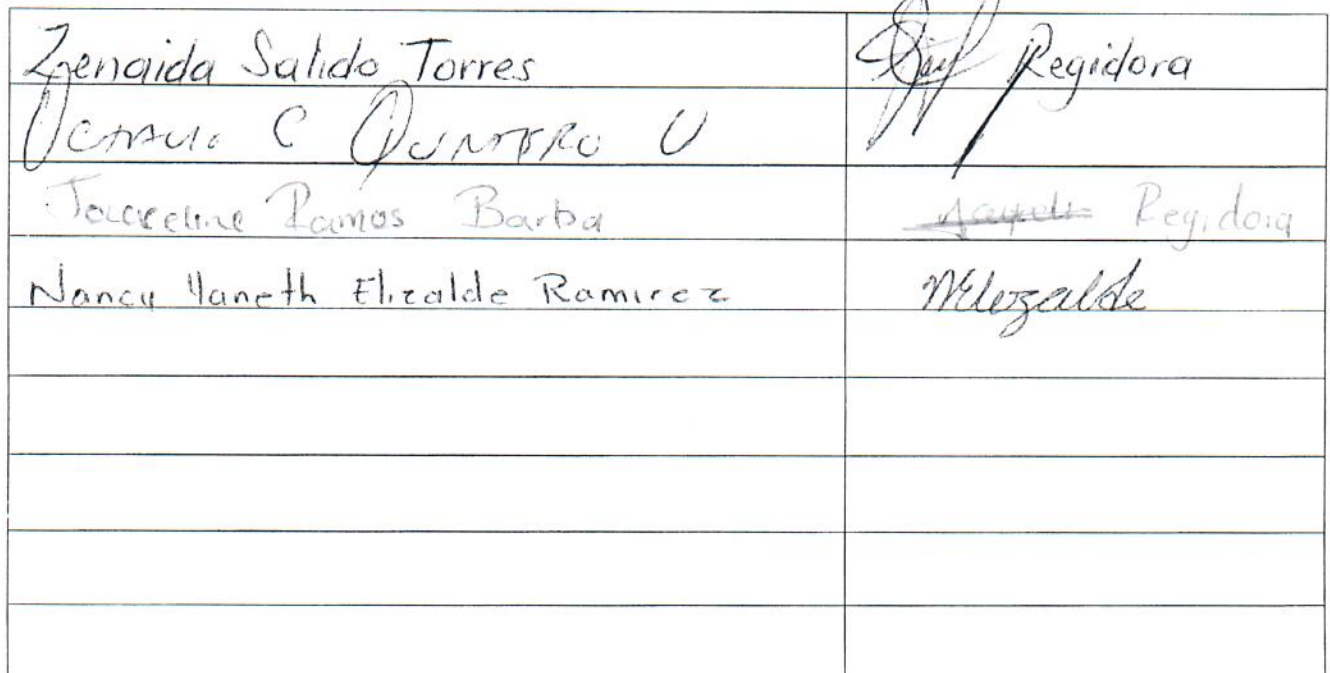 Zenaida Salido Torres Regidora
Octavio C Quintero U
Jacqueline Ramos Barba Regidora
Nancy Yaneth Elizalde Ramirez NElizalde